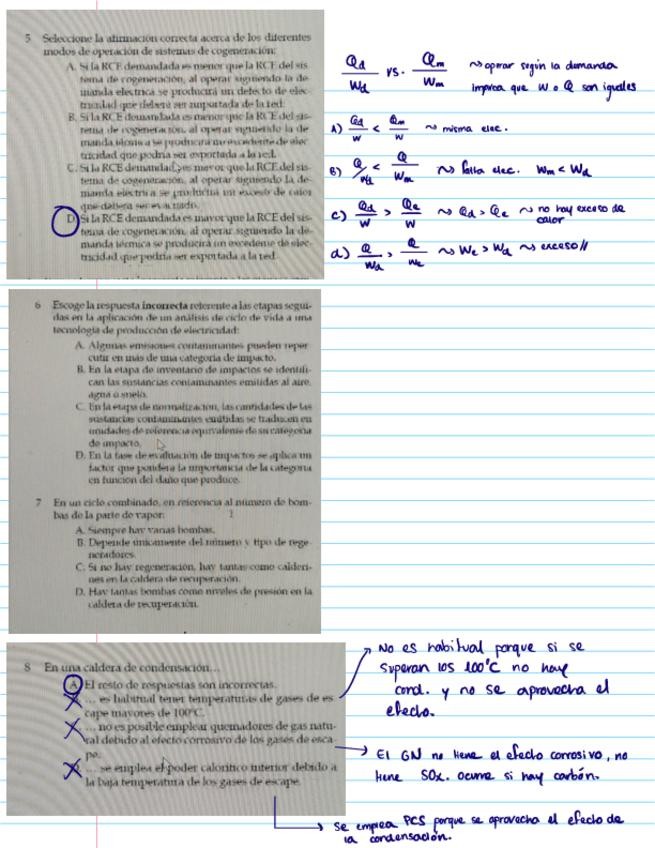 5 Seleccione la afirmación correcta acerca de los diferentes
modos de operación de sistemas de cogeneración:
A. Si la RCE demandada es menor que la RCE del sis-
tema de cogeneración, al operar siguiendo la de-
manda eléctrica se producirá un defecto de elec-
tricidad que deberá ser importada de la red.
B. Si la RCE demandada es menor que la RCE del sis-
tema de cogeneración, al operar siguiendo la de-
manda térmica se producirá un excedente de elec-
tricidad que podría ser exportada a la red.
C. Si la RCE demandada es mayor que la RCE del sis-
tema de cogeneración, al operar siguiendo la de-
manda eléctrica se producirá un exceso de calor
que deberá ser evacuado.
D. Si la RCE demandada es mayor que la RCE del sis-
tema de cogeneración, al operar siguiendo la de-
manda térmica se producirá un excedente de elec-
tricidad que podría ser exportada a la red.
Qd/Wd vs. Qm/Wm ~> operar según la demanda
implica que W o Q son iguales
A) Qd/W < Qm/W ~> misma elec.
B) Q/Wd < Q/Wm ~> falta elec. Wm < Wd
c) Qd/W > Qe/W ~> Qd > Qe ~> no hay exceso de
calor
d) Q/Wd > Q/We ~> We > Wd ~> exceso//
6 Escoge la respuesta incorrecta referente a las etapas segui-
das en la aplicación de un análisis de ciclo de vida a una
tecnología de producción de electricidad:
A. Algunas emisiones contaminantes pueden reper-
cutir en más de una categoría de impacto.
B. En la etapa de inventario de impactos se identifi-
can las sustancias contaminantes emitidas al aire,
agua o suelo.
C. En la etapa de normalización, las cantidades de las
sustancias contaminantes emitidas se traducen en
unidades de referencia equivalente de su categoría
de impacto.
D. En la fase de evaluación de impactos se aplica un
factor que pondera la importancia de la categoría
en función del daño que produce.
7 En un ciclo combinado, en referencia al número de bom-
bas de la parte de vapor:
A. Siempre hay varias bombas.
B. Depende únicamente del número y tipo de rege-
neradores.
C. Si no hay regeneración, hay tantas como calderi-
nes en la caldera de recuperación.
D. Hay tantas bombas como niveles de presión en la
caldera de recuperación.
8 En una caldera de condensación...
A. El resto de respuestas son incorrectas.
... es habitual tener temperaturas de gases de es-
cape mayores de 100°C.
... no es posible emplear quemadores de gas natu-
ral debido al efecto corrosivo de los gases de esca-
pe.
... se emplea el poder calorífico inferior debido a
la baja temperatura de los gases de escape.
No es habitual porque si se
superan los 100°C no hay
cond. y no se aprovecha el
efecto.
El GN no tiene el efecto corrosivo, no
tiene SOx. ocurre si hay carbón.
Se emplea PCS porque se aprovecha el efecto de
la condensación.